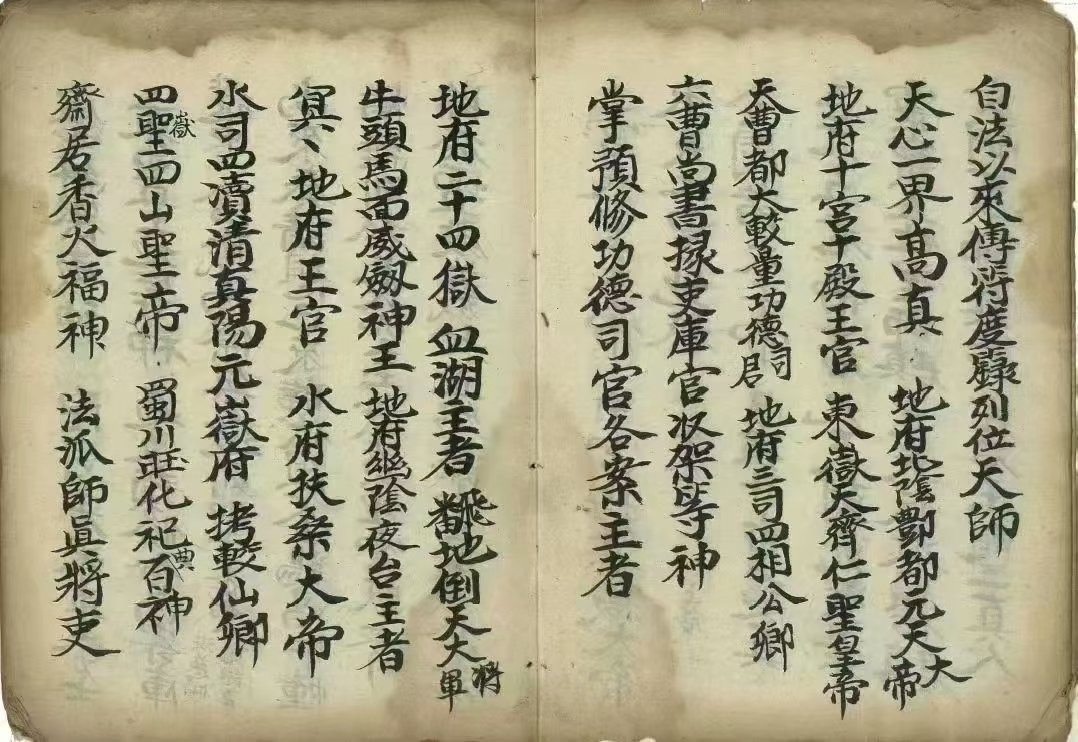 自法以來傳符度籙列位天師
天心一界高真 地府北陰酆都元天大帝
地府十宮十殿王官 東嶽天齊仁聖皇帝
天曹都大較量功德司君 地府三司四相公卿
六曹尚書掾吏庫官收架等神
掌預修功德司官各案主者
地府二十四獄血湖王者 飛地倒天大將軍
牛頭馬面威劔神王 地府幽陰夜台主者
冥丶地府王官 水府扶桑大帝
水司四瀆清真陽元嶽府 拷較仙卿
四聖嶽四山聖帝 蜀川旺化祀典百神
齋居香火福神 法派師真將吏